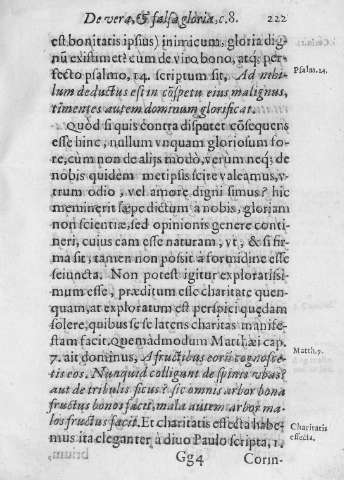 De vera, & falsa gloria, c.8. 222
est bonitatis ipsius) inimicum: gloria dig-
nũ existimet? cùm de viro bono, atq; per-
fecto psalmo, 14. scriptum sit, Ad nihi-
Psalm. 14.
lum deductus est in cõspectu eius malignus,
timentes autem dominum glorificat.
Quòd si quis contra disputet cõsequens
esse hinc, nullum vnquam gloriosum fo-
re, cùm non de alijs modò, verùm neq; de
nobis quidem metipsis scire valeamus, v-
trum odio, vel amore digni simus? hic
meminerit sæpe dictum à nobis, gloriam
non scientiæ, sed opinionis genere conti-
neri, cuius eam esse naturam, vt, & si fir-
ma sit, tamen non possit à formidine esse
seiuncta. Non potest igitur exploratissi-
mum esse, præditum esse charitate quen-
quam, at exploratum est perspici quędam
solere, quibus se se latens charitas manife-
stam facit. Quemàdmodum Matthæi cap.
7. ait dominus, A fructibus eorũ cognosce-
Matth. 7.
tis eos. Nunquid colligunt de spinis vuas?
aut de tribulis ficus? sic omnis arbor bona
fructus bonos facit, mala autem arbor ma-
los fructus facit. Et charitatis effecta habe-
Charitatis
effecta.
mus ita eleganter à diuo Paulo scripta, 1.
Gg4 Corin-